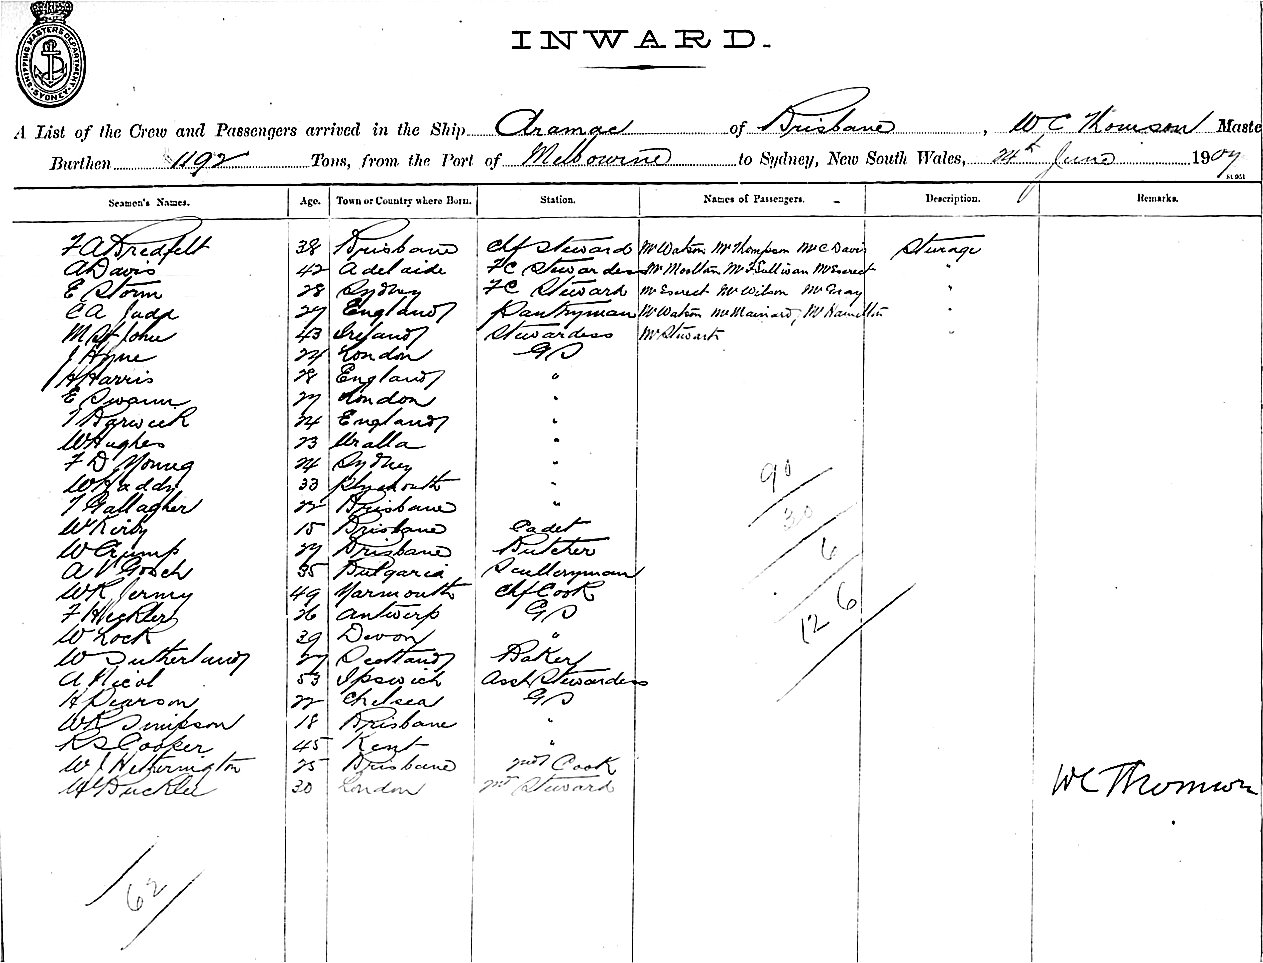 SHIPPING MASTERS DEPARTMENT SYDNEY
INWARD.
A List of the Crew and Passengers arrived in the Ship Aramac of Brisbane, W C Thomson Maste
Burthen 1192 Tons, from the Port of Melbourne to Sydney, New South Wales, 24th June 1907
Seamen's Names. Age. Town or Country where Born. Station. Names of Passengers. Description. Remarks.
F A Bredfelt 38 Brisbane Chf Steward Mr Watson Mr Thompson Mr C Davis Sturage
A Davis 42 Adelaide FC Stewardess Mr Moulton Mr Sullivan Mr Everest "
E Storm 28 Sydney FC Steward Mr Everest Mr Wilson Mr Gray "
C A Judd 27 England Pantryman Mr Watson Mr Mainard, Mr Hamilton "
M St John 43 Ireland Stewardess Mr Stewart "
J Hyne 24 London GS
H Harris 28 England "
E Swann 27 London "
T Barwick 24 England "
W Hughes 23 Uralla "
F D Young 24 Sydney "
W Haddy 33 Plymouth "
T Gallagher 22 Brisbane "
W Kirby 15 Brisbane Cadet
W Crump 27 Brisbane Butcher
A V Gosch 35 Bulgaria Sculleryman
W R Jermy 49 Yarmouth Chf Cook
F Heckler 26 Antwerp GS
W Lock 39 Devon "
W Sutherland 27 Scotland Baker
A Nicol 53 Ipswich Asst Stewardess
H Pearson 22 Chelsea GS
W R Simpson 18 Brisbane "
R S Cooper 45 Kent "
W J Hetherington 25 Brisbane 2nd Cook
H Buckler 30 London Steward
90
30
6
126
W C Thomson
62